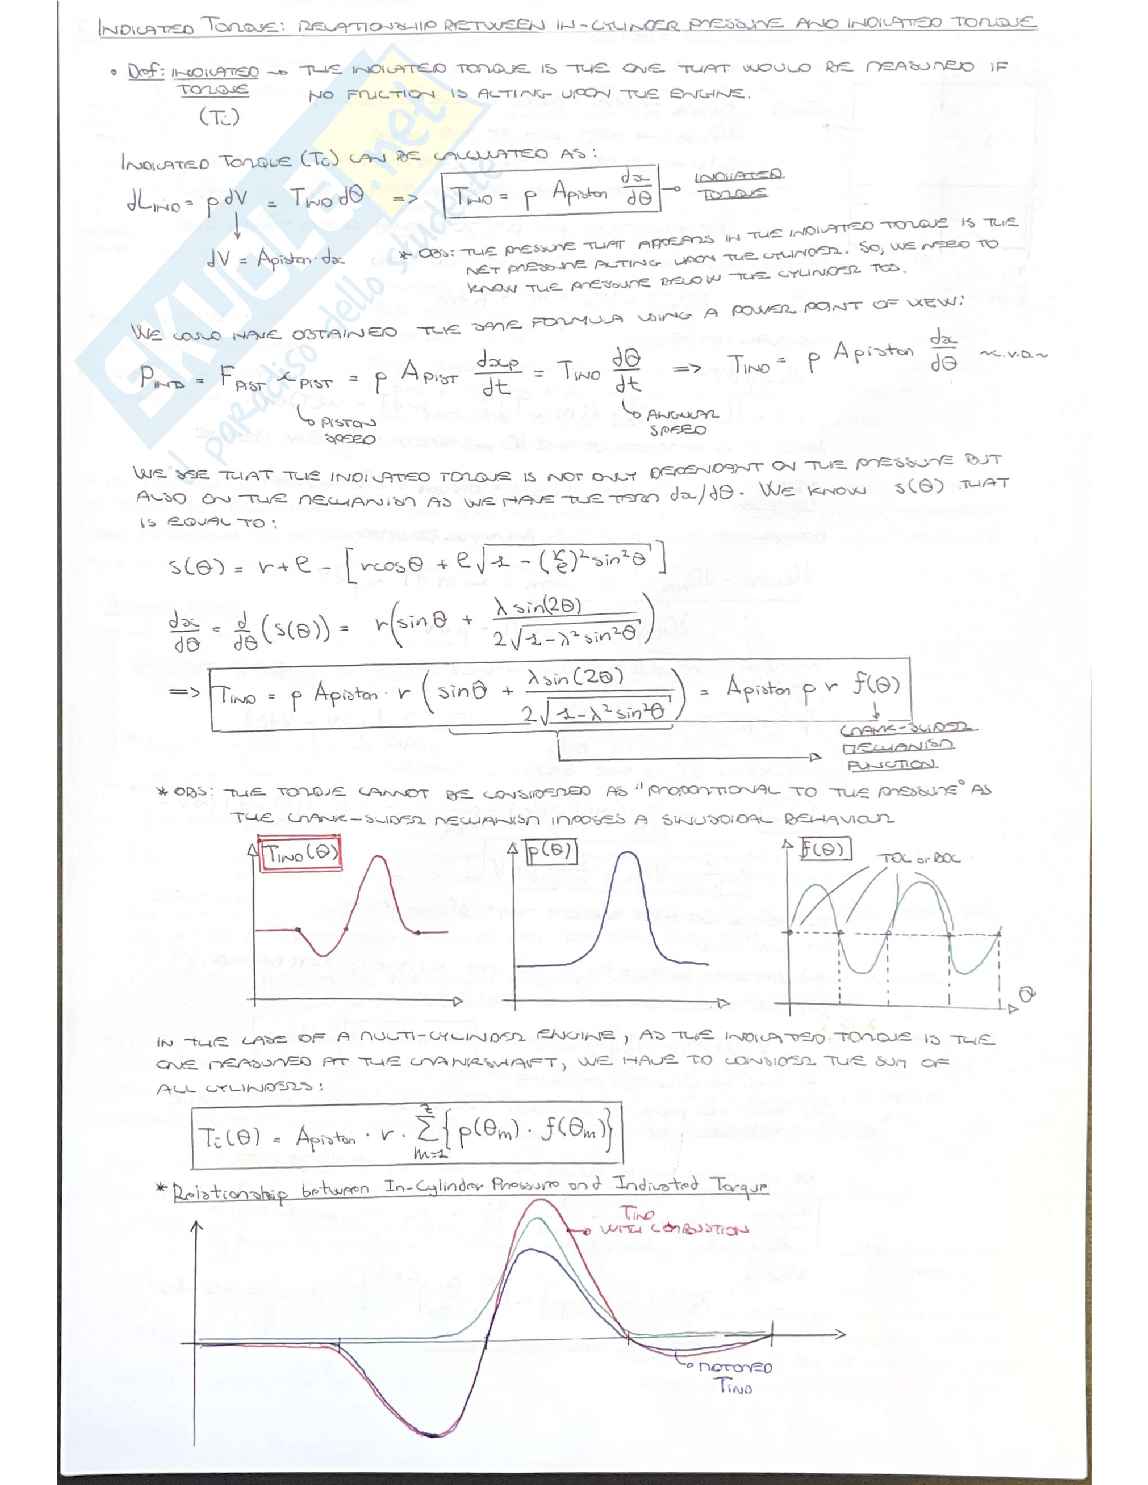 INDICATED TORQUE: RELATIONSHIP BETWEEN IN-CYLINDER PRESSURE AND INDICATED TORQUE
• Def: INDICATED → THE INDICATED TORQUE IS THE ONE THAT WOULD BE MEASURED IF
TORQUE NO FRICTION IS ACTING UPON THE ENGINE.
(Ti)
INDICATED TORQUE (Ti) CAN BE CALCULATED AS:
dLIND = p dV = TIND dθ => TIND = p Apiston dx/dθ → INDICATED TORQUE
dV = Apiston · dx
* OBS: THE PRESSURE THAT APPEARS IN THE INDICATED TORQUE IS THE
NET PRESSURE ACTING UPON THE CYLINDER. SO, WE NEED TO
KNOW THE PRESSURE BELOW THE CYLINDER TOO.
WE COULD HAVE OBTAINED THE SAME FORMULA USING A POWER POINT OF VIEW:
PIND = FPIST ẋPIST = p APIST dxp/dt = TIND dθ/dt => TIND = p Apiston dx/dθ ~c.v.d~
↳ PISTON SPEED ↳ ANGULAR SPEED
WE SEE THAT THE INDICATED TORQUE IS NOT ONLY DEPENDANT ON THE PRESSURE BUT
ALSO ON THE MECHANISM AS WE HAVE THE TERM dx/dθ. WE KNOW s(θ) THAT
IS EQUAL TO:
s(θ) = r + l - [r cosθ + l √(1 - (r/l)² sin²θ)]
dx/dθ = d/dθ (s(θ)) = r (sinθ + λ sin(2θ) / 2√(1-λ² sin²θ))
=> TIND = p Apiston · r (sinθ + λ sin(2θ) / 2√(1-λ² sin²θ)) = Apiston p r f(θ)
CRANK-SLIDER
MECHANISM
FUNCTION
* OBS: THE TORQUE CANNOT BE CONSIDERED AS "PROPORTIONAL TO THE PRESSURE" AS
THE CRANK-SLIDER MECHANISM IMPOSES A SINUSOIDAL BEHAVIOUR
TIND(θ) p(θ) f(θ) TDC or BDC
θ
IN THE CASE OF A MULTI-CYLINDER ENGINE, AS THE INDICATED TORQUE IS THE
ONE MEASURED AT THE CRANKSHAFT, WE HAVE TO CONSIDER THE SUM OF
ALL CYLINDERS:
Ti(θ) = Apiston · r · Σ z m=1 {p(θm) · f(θm)}
* Relationship between In-Cylinder Pressure and Indicated Torque
TIND
WITH COMBUSTION
MOTORED
TIND
SKUOLA.net
il paradiso dello studente